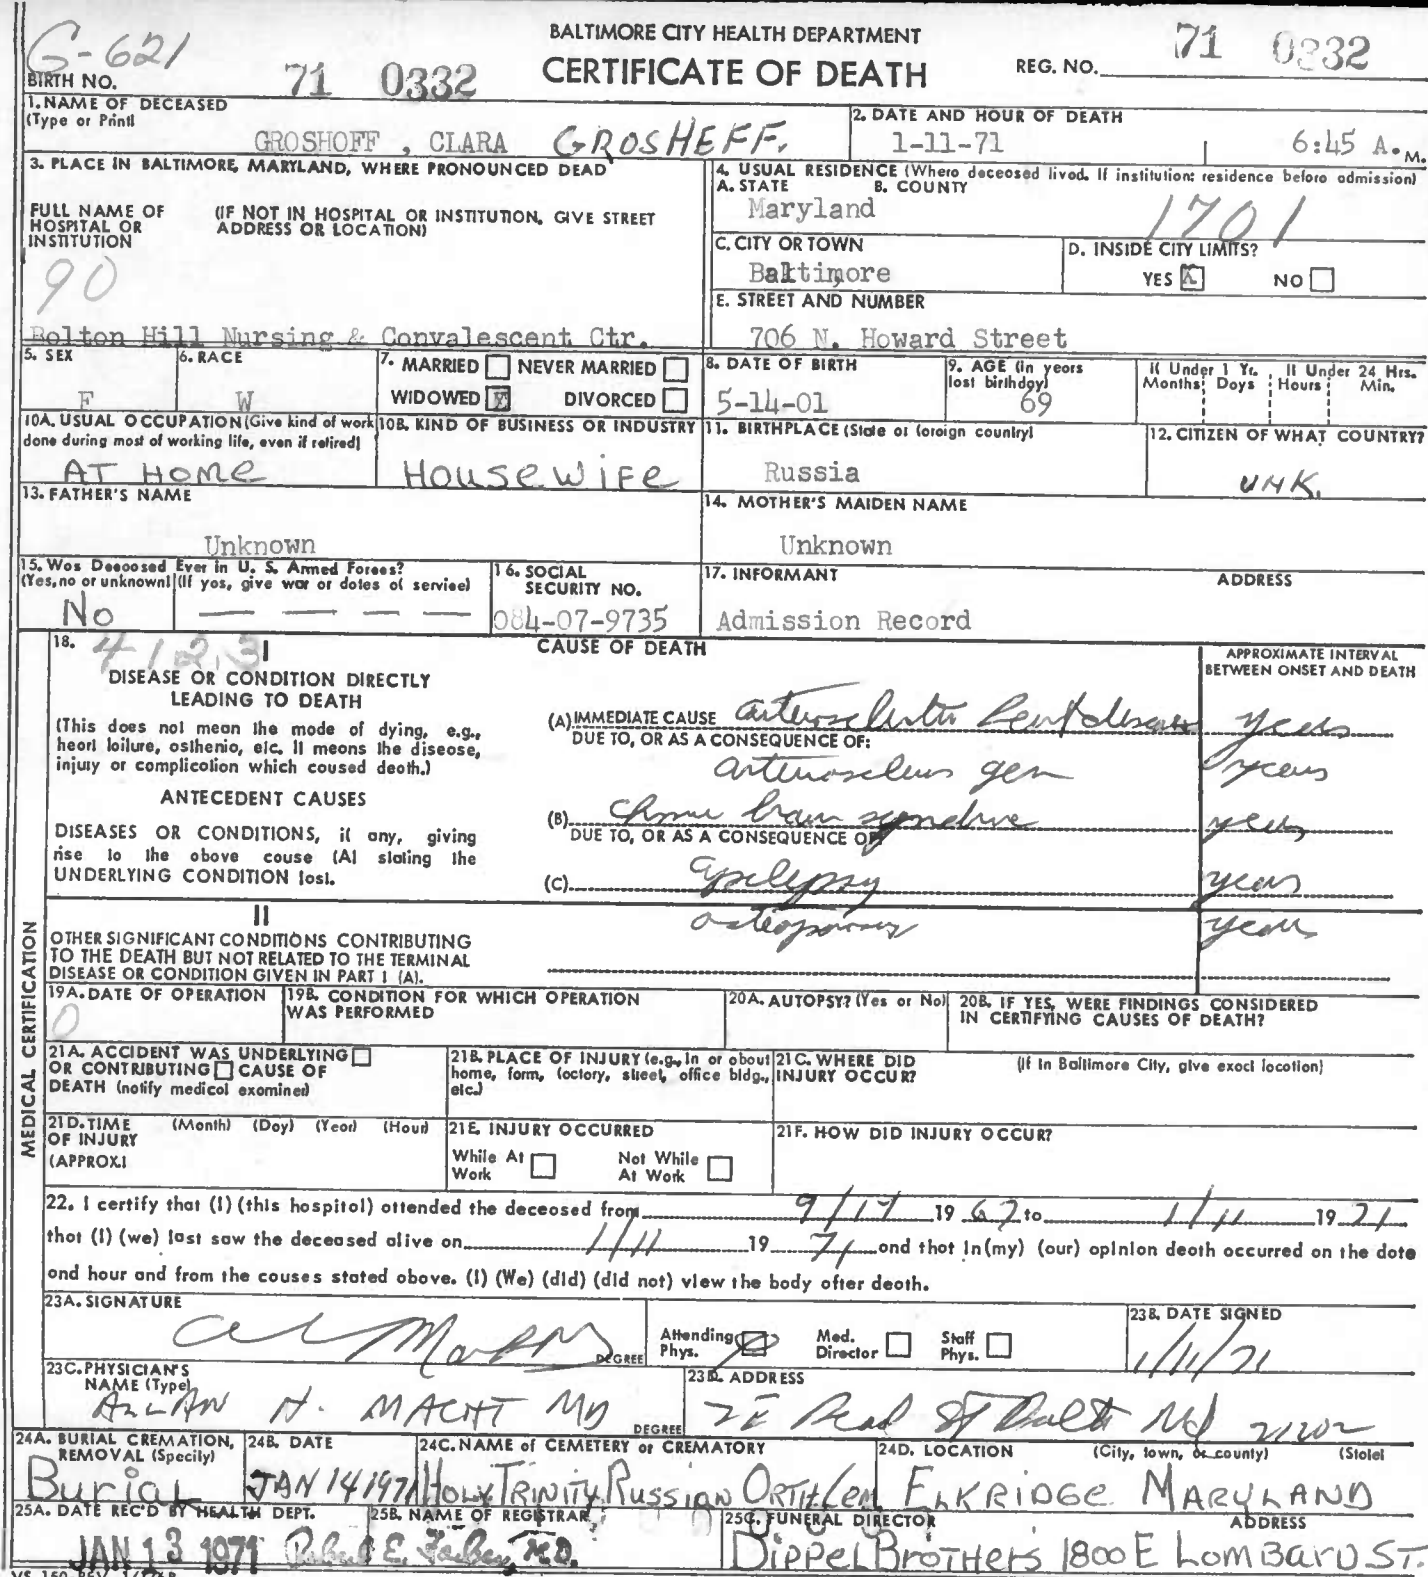 G-621
BALTIMORE CITY HEALTH DEPARTMENT
71 0332
BIRTH NO.
71 0332
CERTIFICATE OF DEATH
REG. NO.
1. NAME OF DECEASED
(Type or Print)
GROSHOFF , CLARA GROSHEFF.
2. DATE AND HOUR OF DEATH
1-11-71 6:45 A.M.
3. PLACE IN BALTIMORE, MARYLAND, WHERE PRONOUNCED DEAD
FULL NAME OF HOSPITAL OR INSTITUTION
(IF NOT IN HOSPITAL OR INSTITUTION, GIVE STREET ADDRESS OR LOCATION)
90
Bolton Hill Nursing & Convalescent Ctr.
4. USUAL RESIDENCE (Where deceased lived. If institution: residence before admission)
A. STATE B. COUNTY
Maryland 1701
C. CITY OR TOWN
Baltimore
D. INSIDE CITY LIMITS?
YES X NO
E. STREET AND NUMBER
706 N. Howard Street
5. SEX
F
6. RACE
W
7. MARRIED NEVER MARRIED
WIDOWED X DIVORCED
8. DATE OF BIRTH
5-14-01
9. AGE (In years last birthday)
69
If Under 1 Yr. If Under 24 Hrs.
Months Days Hours Min.
10A. USUAL OCCUPATION (Give kind of work
done during most of working life, even if retired)
AT HOME
10B. KIND OF BUSINESS OR INDUSTRY
HOUSEWIFE
11. BIRTHPLACE (State or foreign country)
Russia
12. CITIZEN OF WHAT COUNTRY?
UNK.
13. FATHER'S NAME
Unknown
14. MOTHER'S MAIDEN NAME
Unknown
15. Was Deceased Ever in U. S. Armed Forces?
(Yes, no or unknown) (If yes, give war or dates of service)
No — — — —
16. SOCIAL SECURITY NO.
084-07-9735
17. INFORMANT ADDRESS
Admission Record
MEDICAL CERTIFICATION
18. 412.3 I
CAUSE OF DEATH
APPROXIMATE INTERVAL
BETWEEN ONSET AND DEATH
DISEASE OR CONDITION DIRECTLY
LEADING TO DEATH
(This does not mean the mode of dying, e.g.,
heart failure, asthenia, etc. It means the disease,
injury or complication which caused death.)
ANTECEDENT CAUSES
DISEASES OR CONDITIONS, if any, giving
rise to the above cause (A) stating the
UNDERLYING CONDITION last.
(A) IMMEDIATE CAUSE arteriosclerotic heart disease years
DUE TO, OR AS A CONSEQUENCE OF:
arteriosclerosis gen years
(B) chronic brain syndrome years
DUE TO, OR AS A CONSEQUENCE OF:
(C) epilepsy years
II
osteoporosis years
OTHER SIGNIFICANT CONDITIONS CONTRIBUTING
TO THE DEATH BUT NOT RELATED TO THE TERMINAL
DISEASE OR CONDITION GIVEN IN PART I (A).
19A. DATE OF OPERATION
0
19B. CONDITION FOR WHICH OPERATION
WAS PERFORMED
20A. AUTOPSY? (Yes or No)
20B. IF YES, WERE FINDINGS CONSIDERED
IN CERTIFYING CAUSES OF DEATH?
21A. ACCIDENT WAS UNDERLYING
OR CONTRIBUTING CAUSE OF
DEATH (notify medical examiner)
21B. PLACE OF INJURY (e.g., in or about
home, farm, factory, street, office bldg.,
etc.)
21C. WHERE DID INJURY OCCUR?
(If in Baltimore City, give exact location)
21D. TIME OF INJURY (APPROX.)
(Month) (Day) (Year) (Hour)
21E. INJURY OCCURRED
While At Work Not While At Work
21F. HOW DID INJURY OCCUR?
22. I certify that (I) (this hospital) attended the deceased from 9/17 19 67 to 1/11 19 71
that (I) (we) last saw the deceased alive on 1/11 19 71 and that in (my) (our) opinion death occurred on the date
and hour and from the causes stated above. (I) (We) (did) (did not) view the body after death.
23A. SIGNATURE
DEGREE
Attending Phys. Med. Director Staff Phys.
23B. DATE SIGNED
1/11/71
23C. PHYSICIAN'S
NAME (Type)
ALLAN H. MACHT MD DEGREE
23D. ADDRESS
2 E Read St Balt Md 21202
24A. BURIAL CREMATION,
REMOVAL (Specify)
Burial
24B. DATE
JAN 14 1971
24C. NAME of CEMETERY or CREMATORY
HOLY TRINITY RUSSIAN ORTH CEM
24D. LOCATION (City, town, or county) (State)
ELKRIDGE MARYLAND
25A. DATE REC'D BY HEALTH DEPT.
JAN 13 1971
25B. NAME OF REGISTRAR
Robert E. Farber, M.D.
25C. FUNERAL DIRECTOR ADDRESS
Dippel Brothers 1800 E LOMBARD ST.